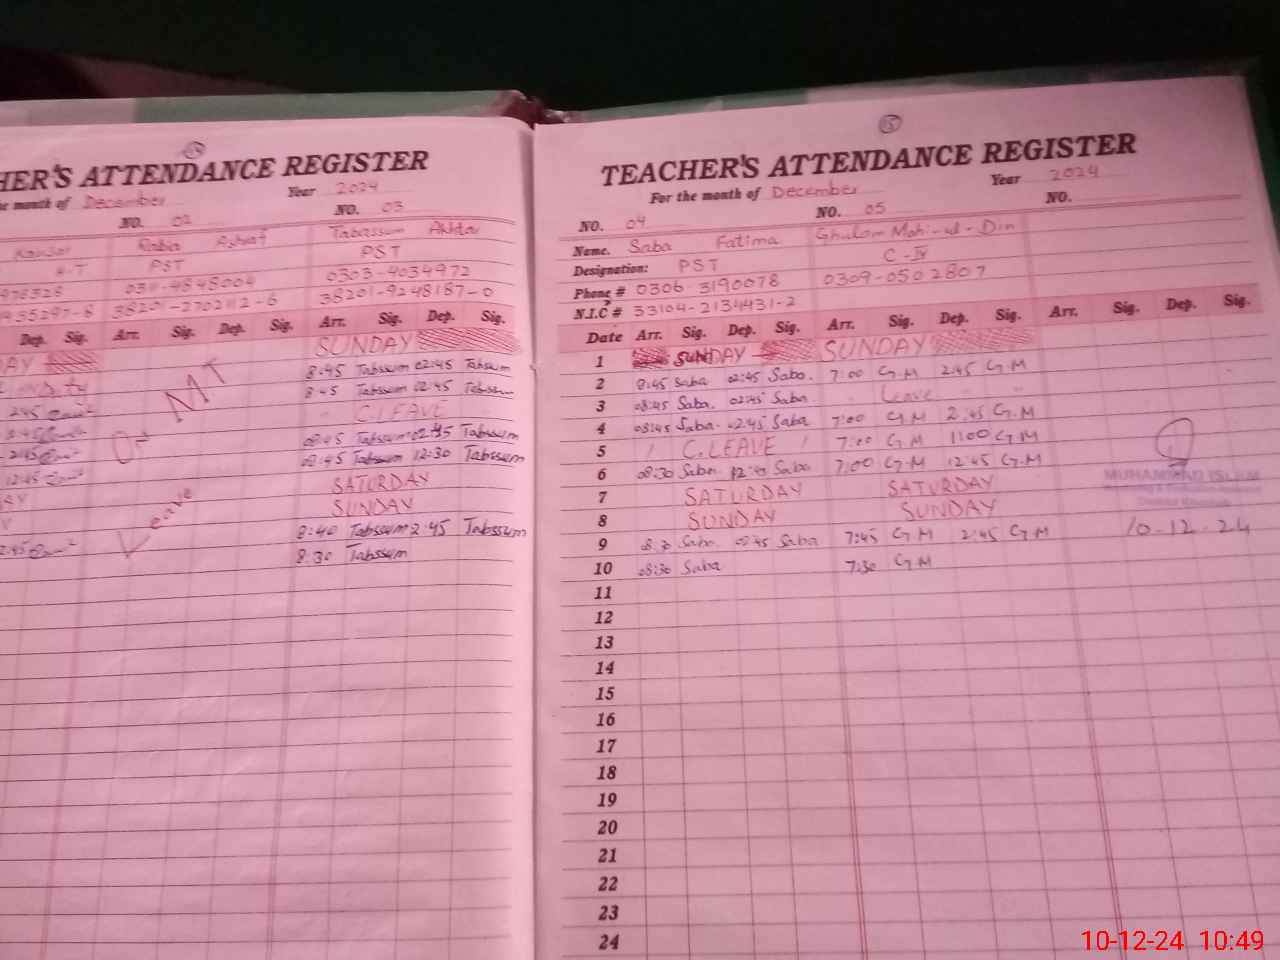 HER'S ATTENDANCE REGISTER
he month of December Year 2024
NO. 02 NO. 03
Kausar Rabia Ashraf Tabassum Akhtar
PST PST
976328 0311-4848004 0303-4034972
38201-2702112-6 38201-9248187-0
Dep. Sig. Arr. Sig. Dep. Sig. Arr. Sig. Dep. Sig.
DAY SUNDAY
8:45 Tabssum 02:45 Tabssum
8:45 Tabssum 02:45 Tabssum
245 C.LEAVE
2:45 08:45 Tabssum 02:45 Tabssum
12:45 08:45 Tabssum 12:30 Tabssum
SATURDAY
SUNDAY
2:45 8:40 Tabssum 2:45 Tabssum
8:30 Tabssum
On MT
Leave
15
TEACHER'S ATTENDANCE REGISTER
For the month of December Year 2024
NO. 04 NO. 05 NO.
Name. Saba Fatima Ghulam Mohi-ud-Din
Designation: PST C-IV
Phone # 0306-3190078 0309-0502807
N.I.C # 33104-2134431-2
Date Arr. Sig. Dep. Sig. Arr. Sig. Dep. Sig. Arr. Sig. Dep. Sig.
1 SUNDAY SUNDAY
2 8:45 Saba 02:45 Saba. 7:00 G.M 2:45 G.M
3 08:45 Saba. 02:45 Saba Leave
4 08:45 Saba. 02:45 Saba 7:00 G.M 2:45 G.M
5 C.LEAVE 7:00 G.M 11:00 G.M
6 08:30 Saba 12:45 Saba 7:00 G.M 12:45 G.M
7 SATURDAY SATURDAY
8 SUNDAY SUNDAY
9 08:30 Saba. 02:45 Saba 7:45 G.M 2:45 G.M
10 08:30 Saba 7:30 G.M
MUHAMMAD ISLAM
10-12-24
11
12
13
14
15
16
17
18
19
20
21
22
23
24
10-12-24 10:49